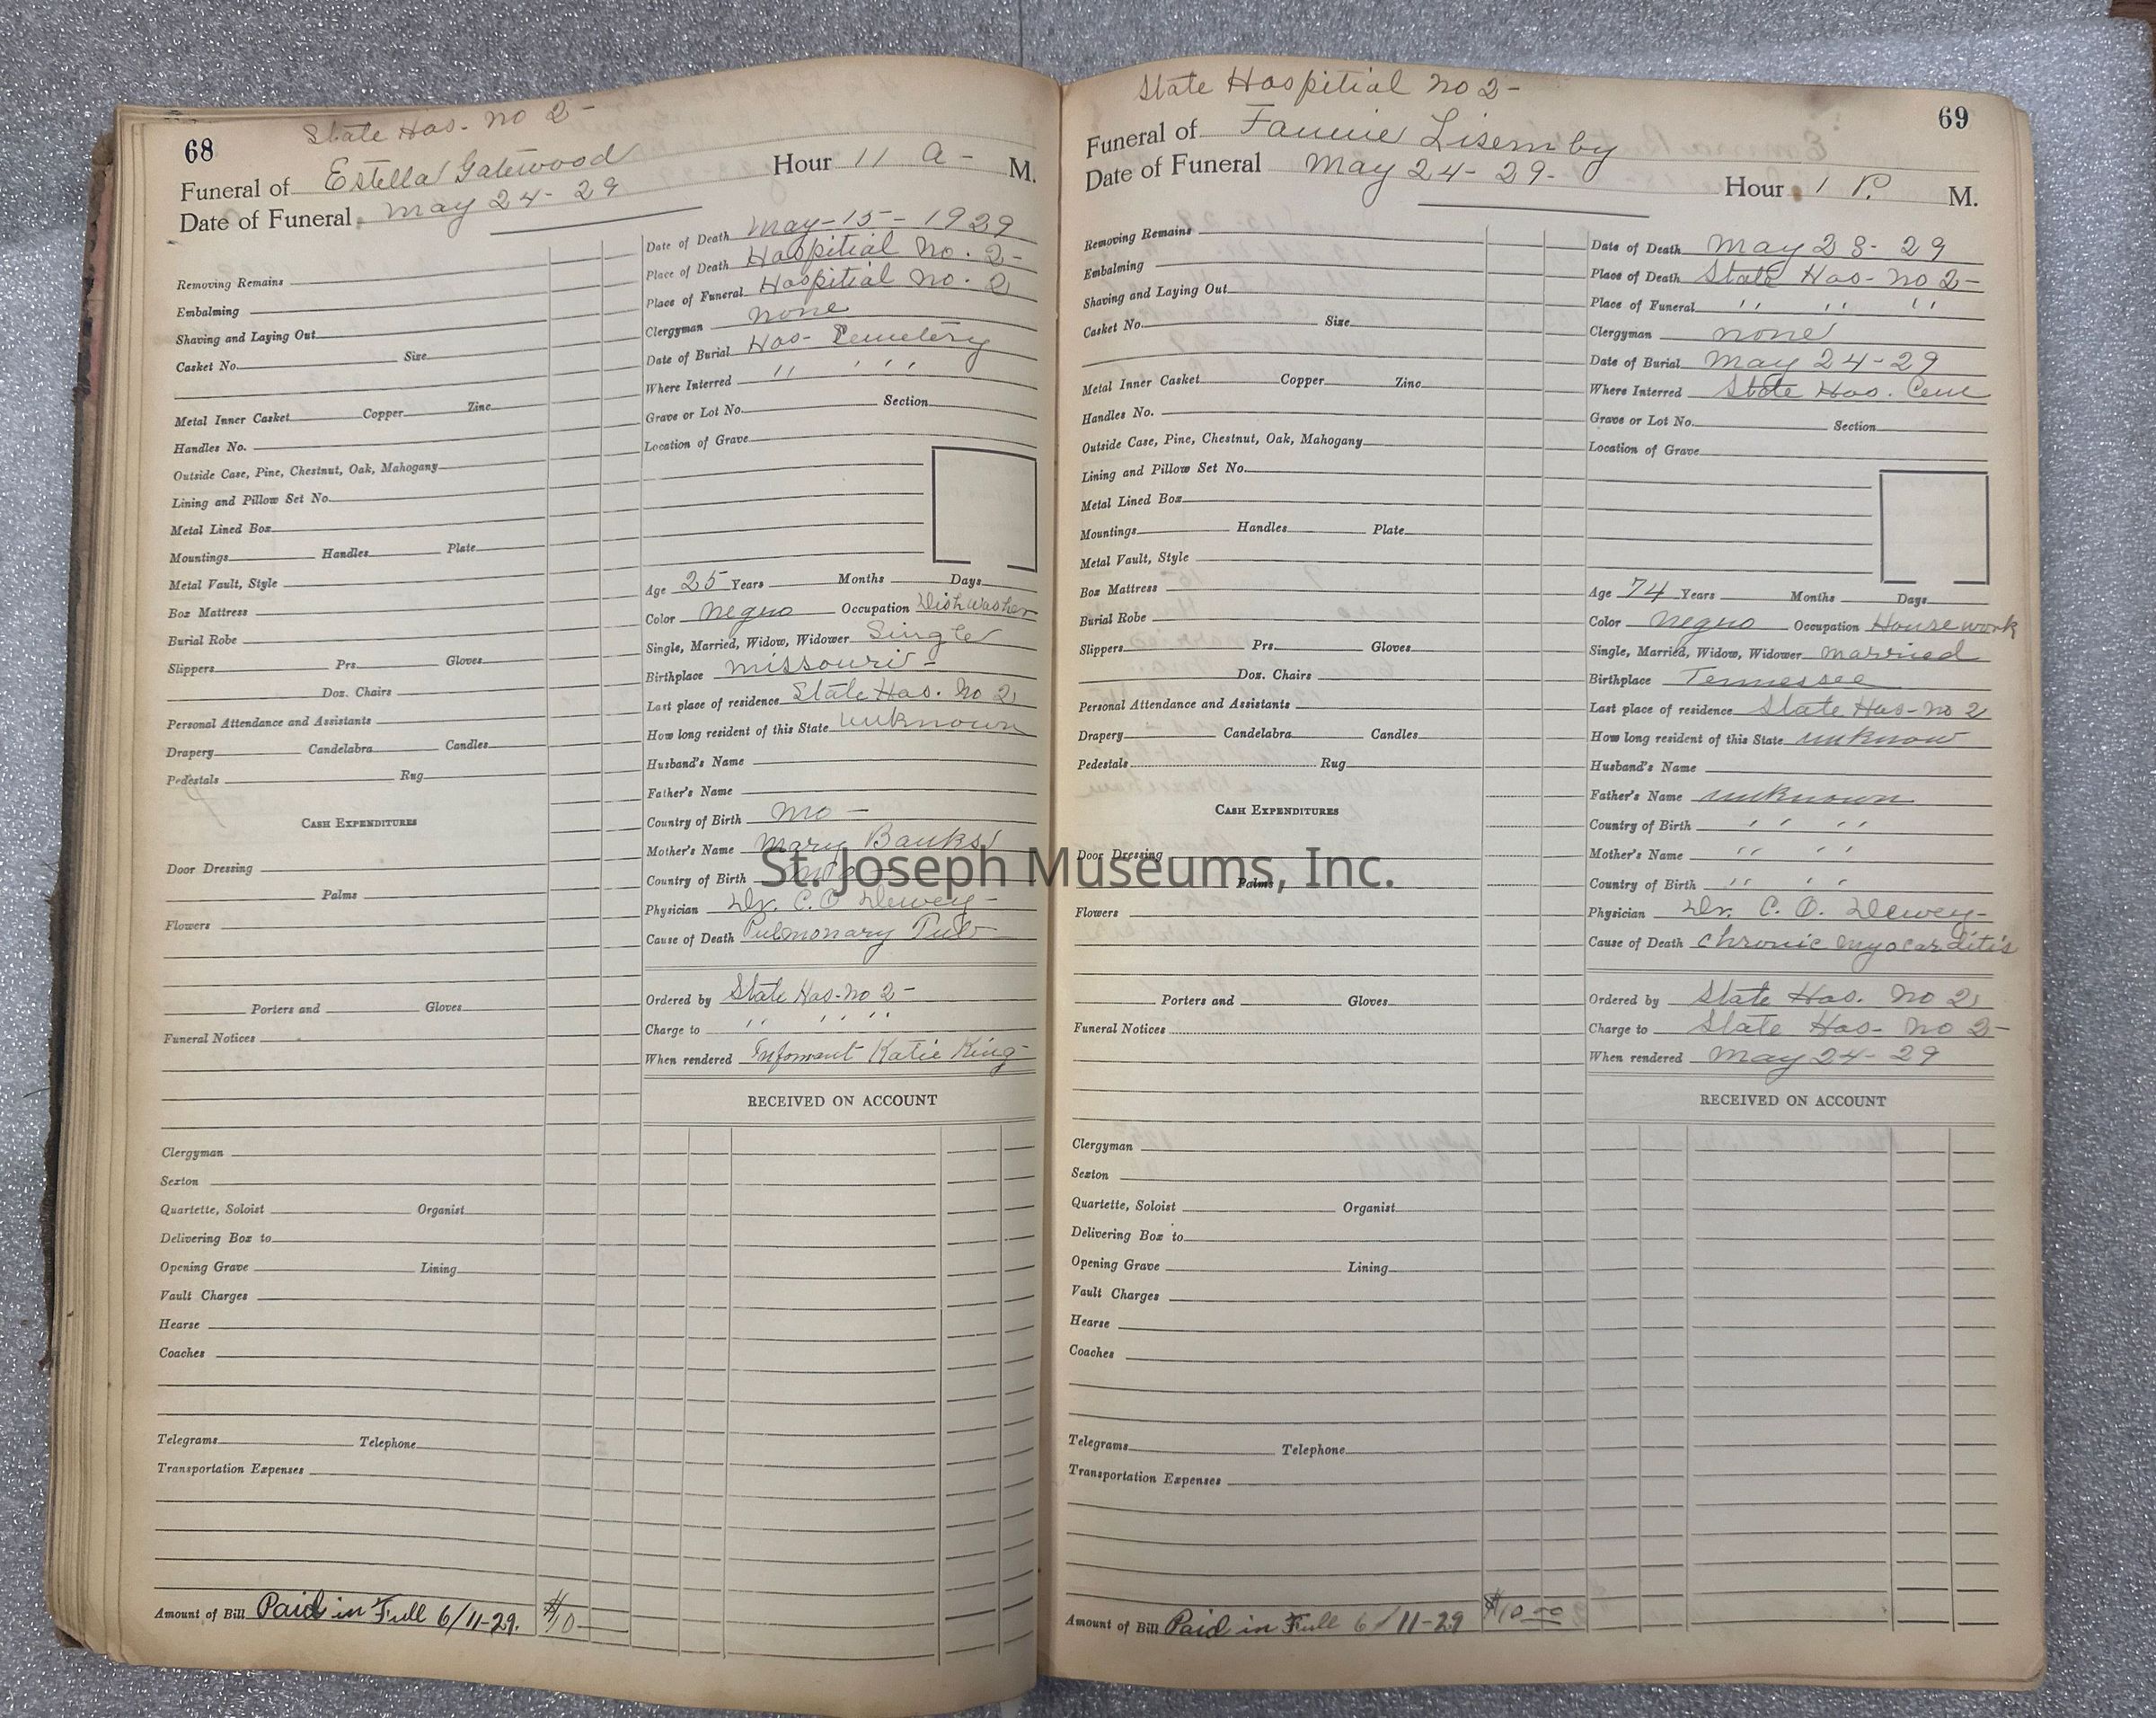 68
State Hos- no 2-
Funeral of Estella Gatewood
Date of Funeral May 24- 29
Hour 11 a- M.
Removing Remains
Embalming
Shaving and Laying Out
Casket No. Size
Metal Inner Casket Copper Zinc
Handles No.
Outside Case, Pine, Chestnut, Oak, Mahogany
Lining and Pillow Set No.
Metal Lined Box
Mountings Handles Plate
Metal Vault, Style
Box Mattress
Burial Robe
Slippers Prs. Gloves
Doz. Chairs
Personal Attendance and Assistants
Drapery Candelabra Candles
Pedestals Rug
CASH EXPENDITURES
Door Dressing
Palms
Flowers
Porters and Gloves
Funeral Notices
Clergyman
Sexton
Quartette, Soloist Organist
Delivering Box to
Opening Grave Lining
Vault Charges
Hearse
Coaches
Telegrams Telephone
Transportation Expenses
Amount of Bill Paid in Full 6/11-29. $10—
Date of Death May-15- 1929
Place of Death Hospitial No. 2-
Place of Funeral Hospitial No. 2
Clergyman none
Date of Burial Hos- Cemetery
Where Interred '' ' ' '
Grave or Lot No. Section
Location of Grave
Age 25 Years Months Days
Color negro Occupation Dishwasher
Single, Married, Widow, Widower Single
Birthplace missouri-
Last place of residence State Hos. No 2
How long resident of this State unknown
Husband's Name
Father's Name
Country of Birth Mo -
Mother's Name Mary Banks
Country of Birth Mo
Physician Dr. C. O Dewey-
Cause of Death Pulmonary Tub
Ordered by State Hos- no 2-
Charge to '' '' ''
When rendered Infomant Katie King-
RECEIVED ON ACCOUNT
State Hospitial no 2-
69
Funeral of Fannie Lisemby
Date of Funeral May 24- 29-
Hour 1 P. M.
Removing Remains
Embalming
Shaving and Laying Out
Casket No. Size
Metal Inner Casket Copper Zinc
Handles No.
Outside Case, Pine, Chestnut, Oak, Mahogany
Lining and Pillow Set No.
Metal Lined Box
Mountings Handles Plate
Metal Vault, Style
Box Mattress
Burial Robe
Slippers Prs. Gloves
Doz. Chairs
Personal Attendance and Assistants
Drapery Candelabra Candles
Pedestals Rug
CASH EXPENDITURES
Door Dressing
Palms
Flowers
Porters and Gloves
Funeral Notices
Clergyman
Sexton
Quartette, Soloist Organist
Delivering Box to
Opening Grave Lining
Vault Charges
Hearse
Coaches
Telegrams Telephone
Transportation Expenses
Amount of Bill Paid in Full 6/11-29 $10.00
Date of Death May 23- 29
Place of Death State Hos- no 2-
Place of Funeral '' '' ''
Clergyman none
Date of Burial May 24-29
Where Interred State Hos. Cem
Grave or Lot No. Section
Location of Grave
Age 74 Years Months Days
Color negro Occupation Housework
Single, Married, Widow, Widower married
Birthplace Tennessee
Last place of residence State Hos- no 2
How long resident of this State unknow
Husband's Name
Father's Name unknown
Country of Birth '' ''
Mother's Name '' ''
Country of Birth '' ''
Physician Dr. C. O. Dewey-
Cause of Death chronic myocarditis
Ordered by State Hos. No 2
Charge to State Hos- no 2-
When rendered May 24- 29
RECEIVED ON ACCOUNT
St. Joseph Museums, Inc.